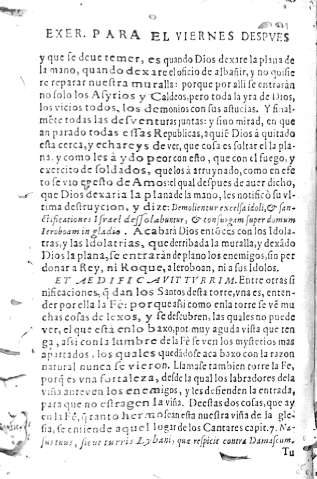 EXER. PARA EL VIERNES DESPVES
y que se deue temer, es quando Dios dexare la plana de
la mano, quando dexare el oficio de albañir, y no quisie
re reparar nuestra muralla: porque por alli se entraràn
no solo los Asyrios y Caldeos, pero toda la yra de Dios,
los vicios todos, los demonios con sus astucias. Y final-
mẽte todas las desuenturas juntas: y sino mirad, en que
an parado todas essas Republicas, aquiẽ Dios à quitado
esta cerca, y echareys de ver, que cosa es soltar el la pla-
na, y como les à ydo peor con esto, que con el fuego, y
exercito de soldados, que los à arruynado, como en efe
to se vio esto de Amos: el qual despues de auer dicho,
que Dios dexaria la plana de la mano, les notificò su vl
tima destruycion, y dize: Demolientur excelsa idoli, & san-
ctificationes Israel desolabuntur, & consurgam super domum
Ieroboam in gladio. Acabarà Dios entõces con los Idola
tras, y las idolatrias, que derribada la muralla, y dexãdo
Dios la plana, se entraràn de plano los enemigos, sin per
donar a Rey, ni Roque, a Ieroboan, ni a sus Idolos.
ET AEDIFICAVIT TVRRIM. Entre otras si
nificaciones, q̃ dan los Santos desta torre, vna es, enten-
der por ella la Fè: porque assi como en la torre se vẽ mu
chas cosas de lexos, y se descubren, las quales no puede
ver, el que està en lo baxo, por muy aguda vista que ten
ga, assi con la lumbre de la Fè se ven los mysterios mas
apartados, los quales quedãdose aca baxo con la razon
natural nunca se vieron. Llamase tambien torre la Fè,
porq̃ es vna fortaleza, desde la qual los labradores de la
viña anteven los enemigos, y les defienden la entrada,
para que no estragen la viña. De estas dos cosas, que ay
en la Fè, q̃ tanto hermosean esta nuestra viña de la Igle-
sia, se entiende aquel lugar de los Cantares capit. 7. Na-
sus tuus, sicut turris Lybani, que respicit contra Damascum.
Tu